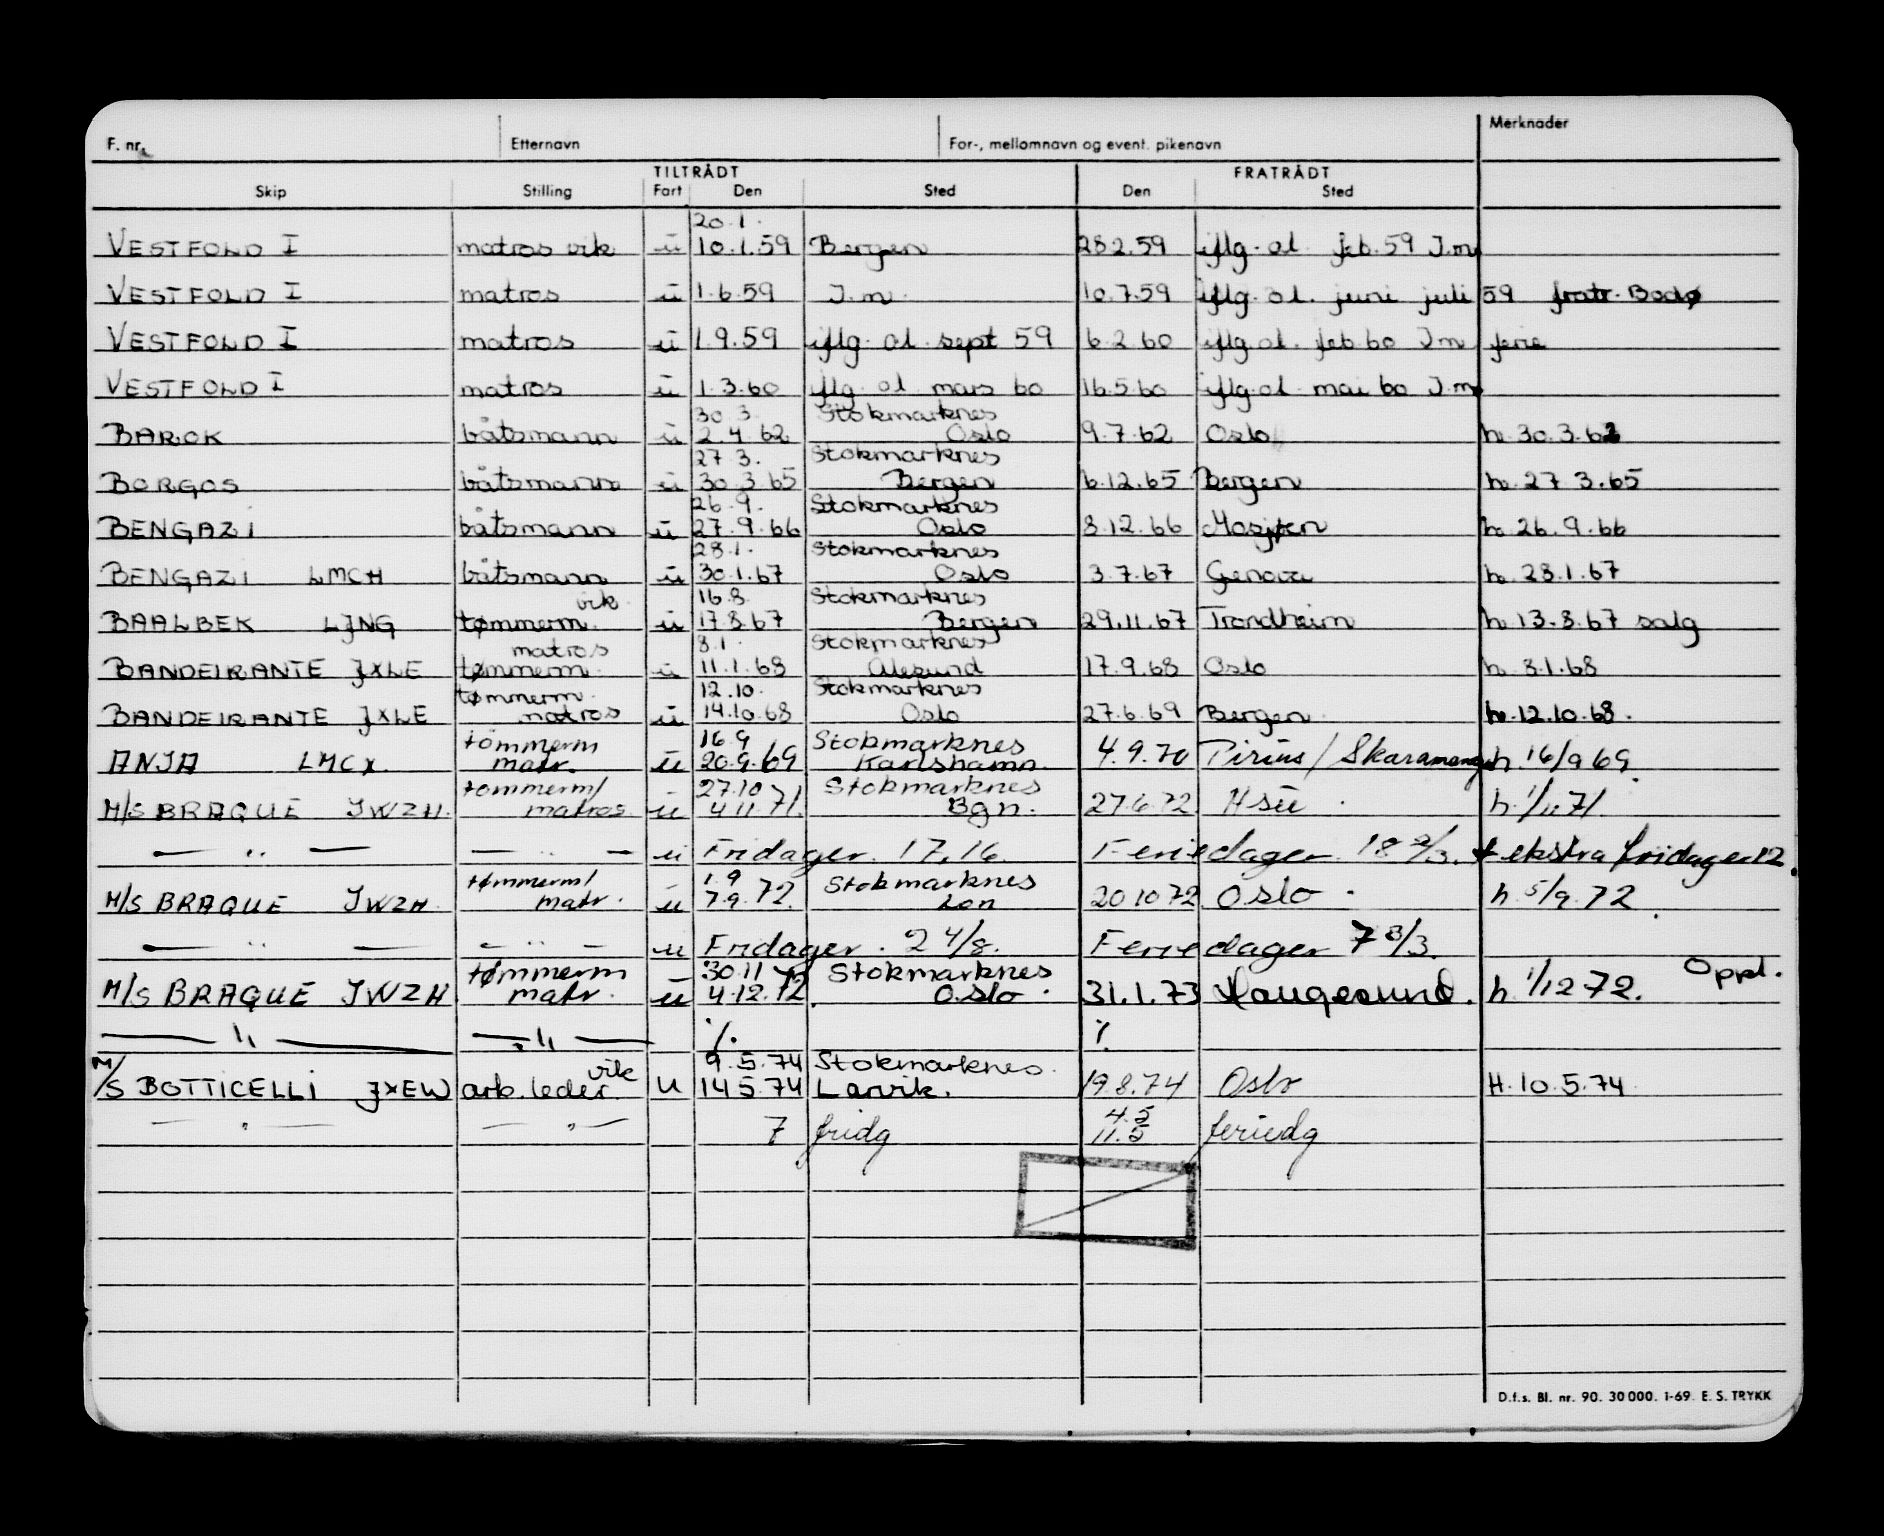 F. nr. Etternavn For-, mellomnavn og event. pikenavn Merknader
TILTRÅDT FRATRÅDT
Skip Stilling Fart Den Sted Den Sted
20.1.
VESTFOLD I matros vik u 10.1.59 Bergen 28.2.59 iflg. al. feb. 59 J.m
VESTFOLD I matros u 1.6.59 J.m. 10.7.59 iflg. al. juni juli 59 fratr. Bodø
VESTFOLD I matros u 1.9.59 iflg. al. sept 59 6.2.60 iflg. al. feb 60 J.m ferie
VESTFOLD I matros u 1.3.60 iflg. al. mars 60 16.5.60 iflg. al. mai 60 J.m
30.3. Stokmarknes
BAROK båtsmann u 2.4.62 Oslo 9.7.62 Oslo h. 30.3.62
27.3. Stokmarknes
BORGOS båtsmann u 30.3.65 Bergen 6.12.65 Bergen h. 27.3.65
26.9. Stokmarknes
BENGAZI båtsmann u 27.9.66 Oslo 8.12.66 Mosjøen h. 26.9.66
28.1. Stokmarknes
BENGAZI LMCH båtsmann u 30.1.67 Oslo 3.7.67 Genova h. 28.1.67
vik. 16.8. Stokmarknes
BAALBEK LJNG tømmerm. u 17.8.67 Bergen 29.11.67 Trondheim h. 13.8.67 salg
matros 8.1. Stokmarknes
BANDEIRANTE JXLE tømmerm. u 11.1.68 Ålesund 17.9.68 Oslo h. 8.1.68
tømmerm. 12.10. Stokmarknes
BANDEIRANTE JXLE matros u 14.10.68 Oslo 27.6.69 Bergen. h. 12.10.68.
tömmerm 16.9 Stokmarknes
ANJA LMCX. matr. u 20.9.69 Karlshamn. 4.9.70 Piräus / h. 16/9 69.
tømmerm/ 27.10 Stokmarknes
M/S BRAQUE JWZH. matros. u 4.11.71. Bgn. 27.6.72 h. 1/11 71.
— " — — " — u Fridager. 17,16. Feriedager 18 2/3. + ekstra fridager 12.
tømmerm/ 1.9 Stokmarknes
M/S BRAQUE JWZH. matr. u 7.9.72. Lon 20.10.72 Oslo. h. 5/9.72.
— " — — " — u Fridager. 2 4/8. Feriedager 7 3/3.
tømmerm 30.11 Stokmarknes Oppl.
M/S BRAQUE JWZH matr. u 4.12.72. Oslo. 31.1.73 Haugesund. h. 1/12 72.
— " — — " — %. %
vik 9.5.74 Stokmarknes.
M/S BOTTICELLI JXEW arb. leder. u 14.5.74 Larvik. 19.8.74 Oslo H. 10.5.74
— " — — " — 7 fridg 4.5 11.5 feriedg
D.f.s. Bl. nr. 90. 30 000. 1-69. E. S. TRYKK